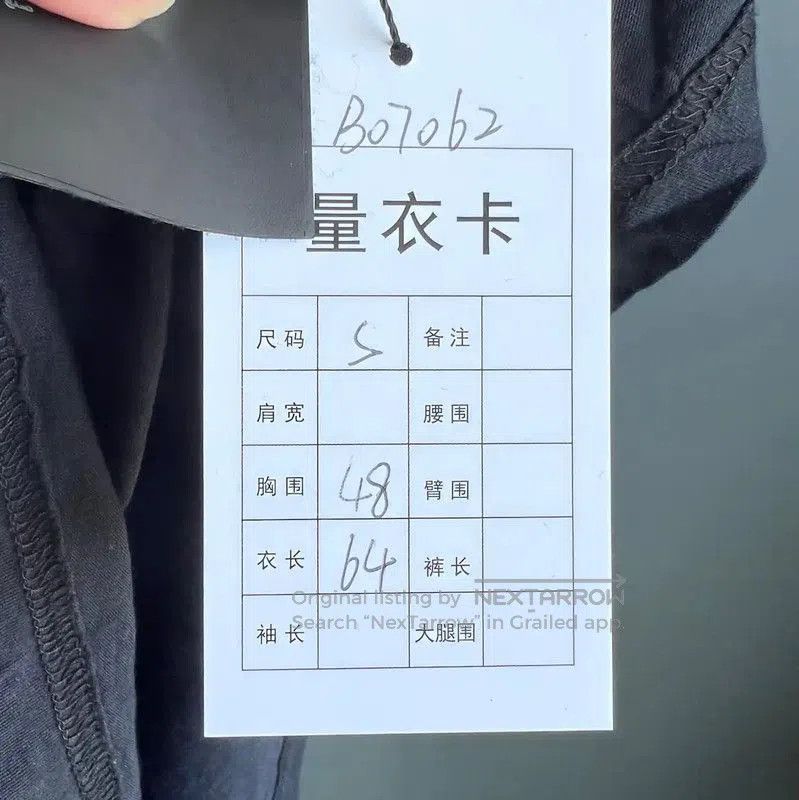 B07062
量衣卡
尺码 S 备注
肩宽 腰围
胸围 48 臂围
衣长 64 裤长
袖长 大腿围
Original listing by NEXTARROW
Search “NexTarrow” in Grailed app.